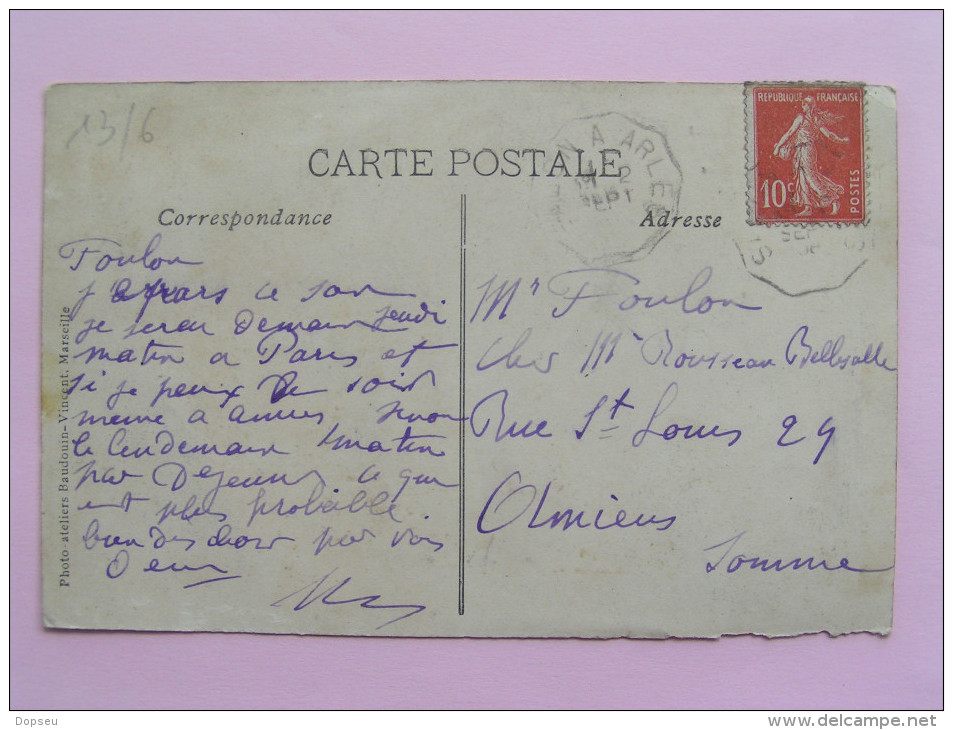 13/6
CARTE POSTALE
A ARLES
2
SEPT
REPUBLIQUE FRANÇAISE
10c
POSTES
SEPT
Correspondance
Adresse
Foulon
je pars ce soir
je serai demain jeudi
matin a Paris et
si je peux le soir
meme a amiens sinon
le lendemain matin
par Dejeuner ce qui
est plus probable
bien des choses par vous
Deux
Mr Foulon
chez Mr Rousseau Bellesalle
Rue St Louis 29
Amiens
Somme
Photo-ateliers Baudouin-Vincent, Marseille
Dopseu
www.delcampe.net